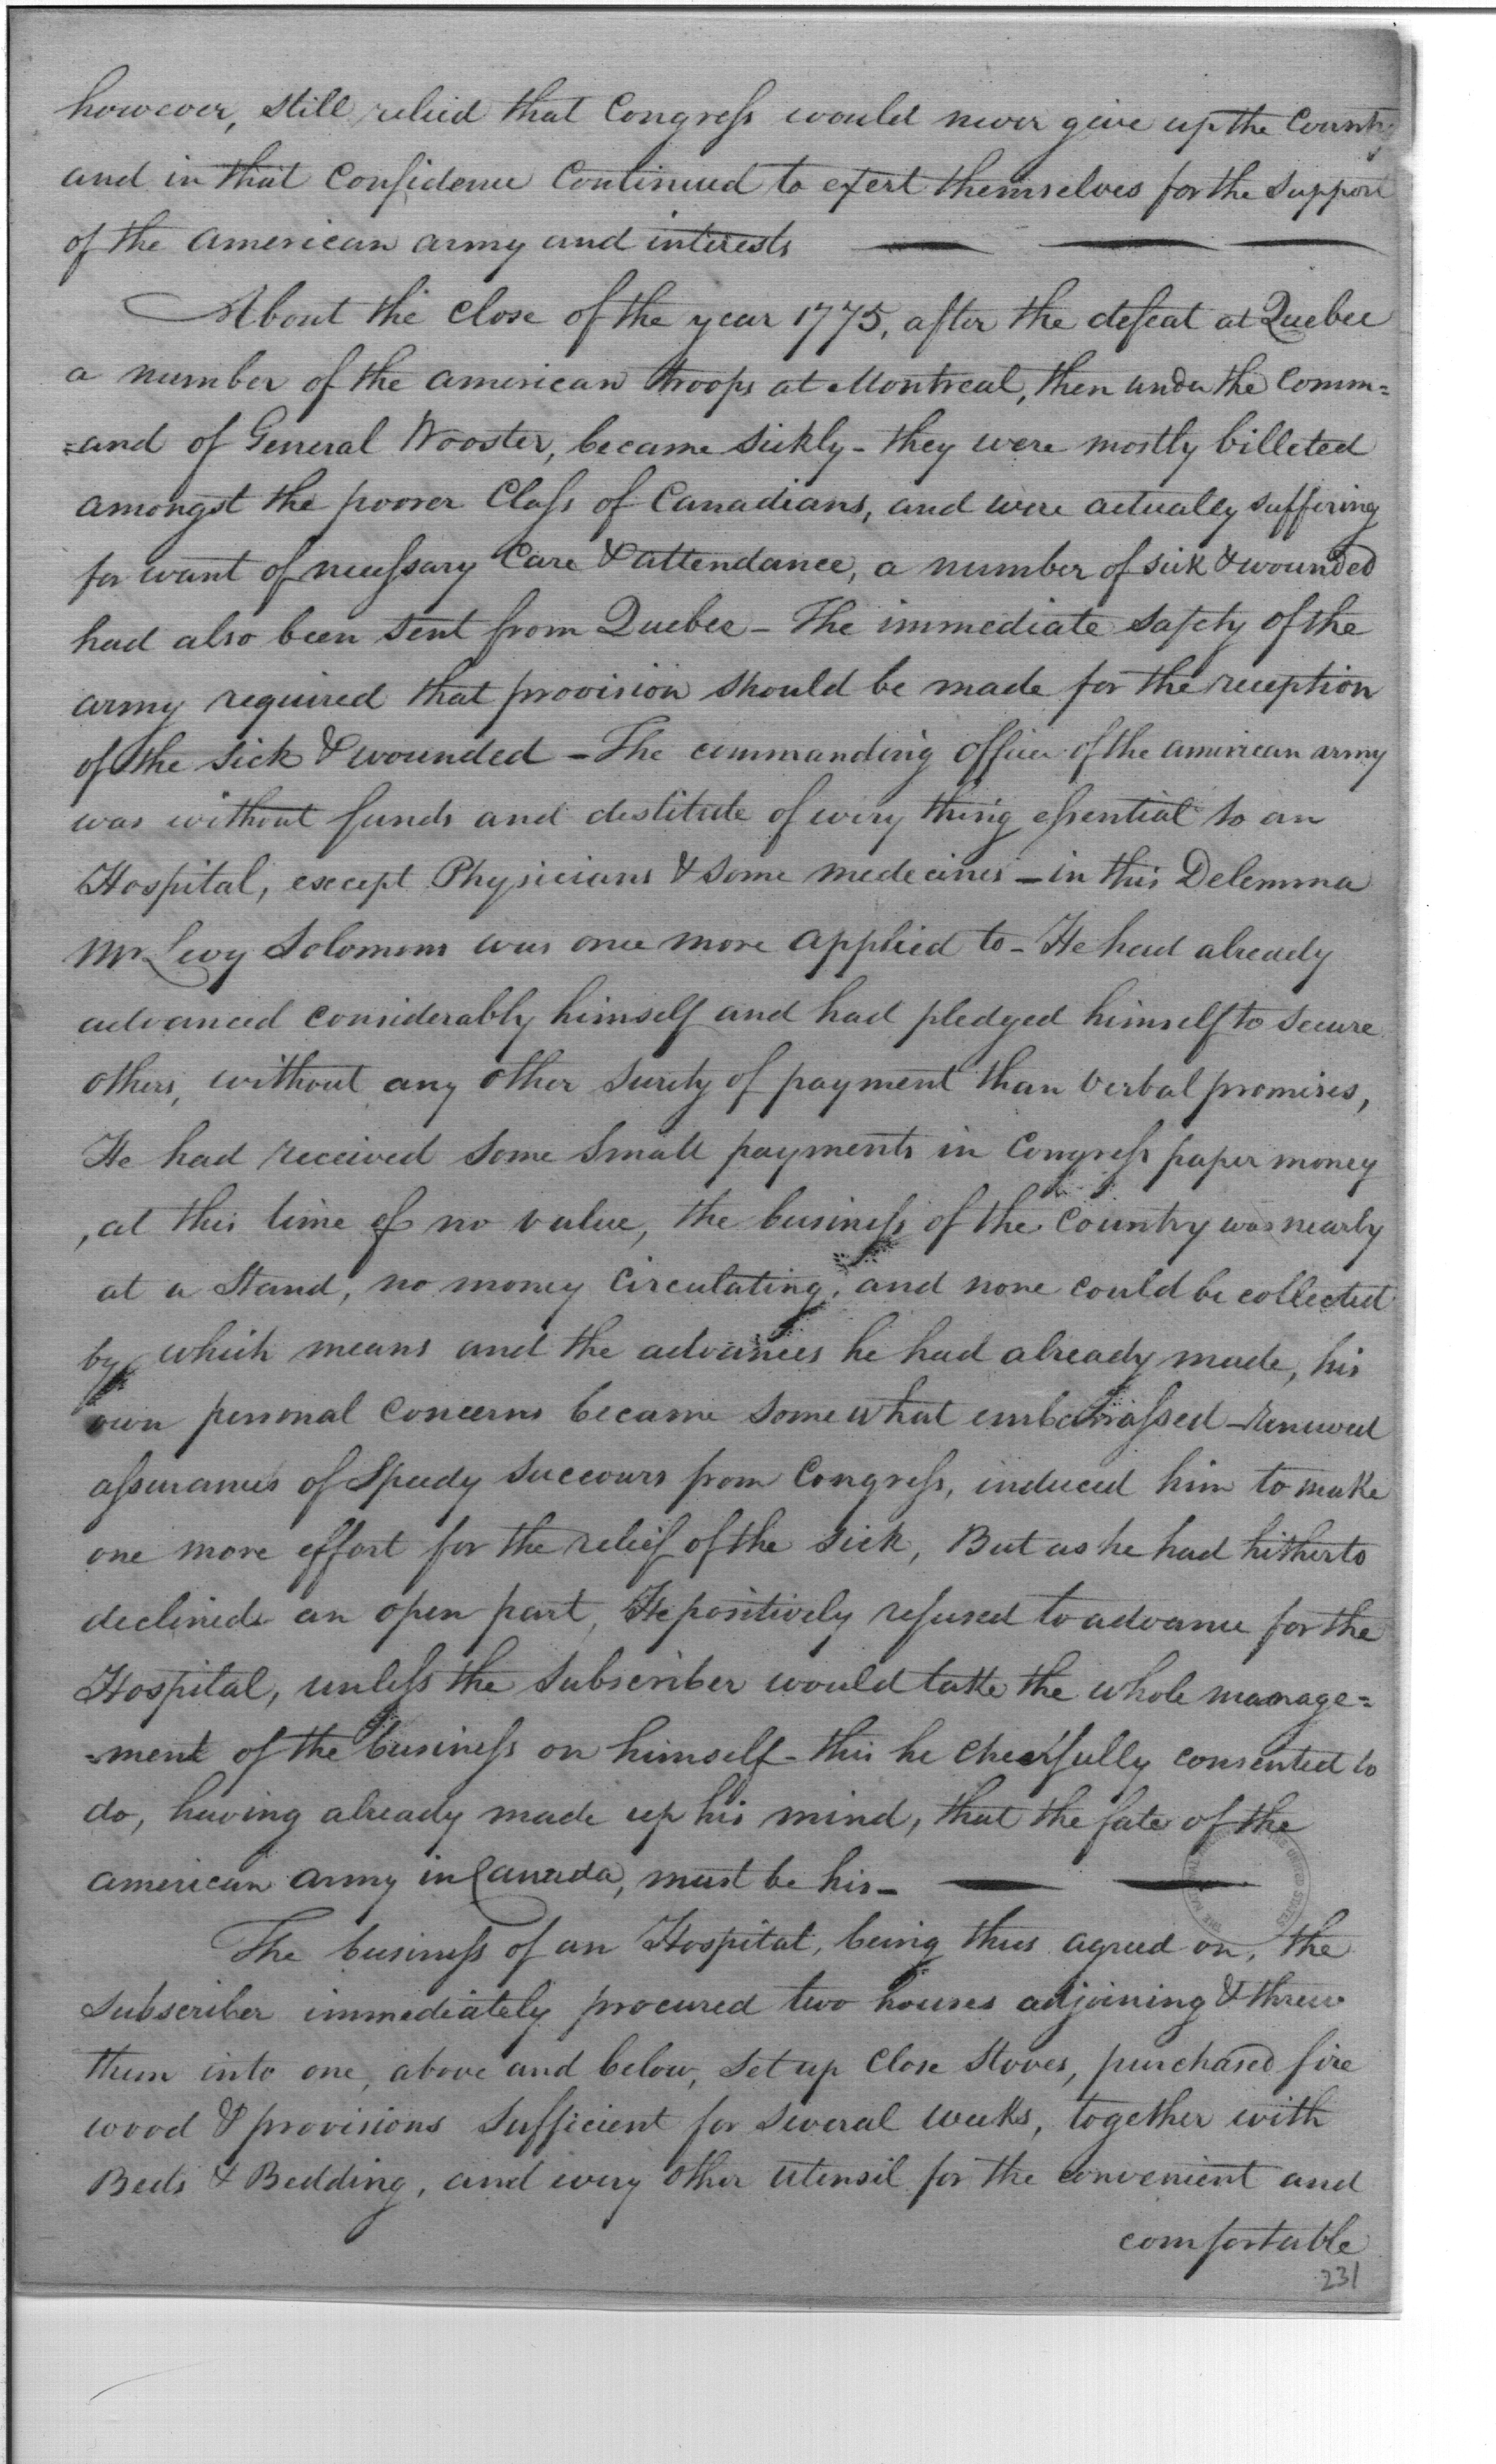 however, still relied that Congress would never give up the Country
and in that Confidence Continued to exert themselves for the support
of the american army and interests
About the close of the year 1775, after the defeat at Quebec
a number of the american troops at Montreal, then under the Comm=
=and of General Wooster, became sickly - they were mostly billeted
amongst the poorer Class of Canadians, and were actually suffering
for want of necessary Care & attendance, a number of sick & wounded
had also been sent from Quebec - The immediate safety of the
army required that provision should be made for the reception
of the sick & wounded - The commanding officer of the american army
was without funds and destitute of every thing essential to an
Hospital, except Physicians & some medecines - in this Delemma
Mr Levy Solomons was once more applied to - He had already
advanced considerably himself and had pledged himself to secure
others, without any other surety of payment than verbal promises,
He had received some small payments in Congress paper money
, at this time of no value, the business of the Country was nearly
at a stand, no money circulating, and none could be collected
by which means and the advances he had already made, his
own personal concerns became somewhat embarrassed - renewed
assurances of speedy succours from Congress, induced him to make
one more effort for the relief of the sick, But as he had hitherto
declined an open part, He positively refused to advance for the
Hospital, unless the subscriber would take the whole manage=
=ment of the business on himself - this he cheerfully consented to
do, having already made up his mind, that the fate of the
american army in Canada, must be his -
The business of an Hospital, being thus agreed on, the
subscriber immediately procured two houses adjoining & threw
them into one, above and below, set up close stoves, purchased fire
wood & provisions sufficient for several weeks, together with
Beds & Bedding, and every other utensil for the convenient and
comfortable
231